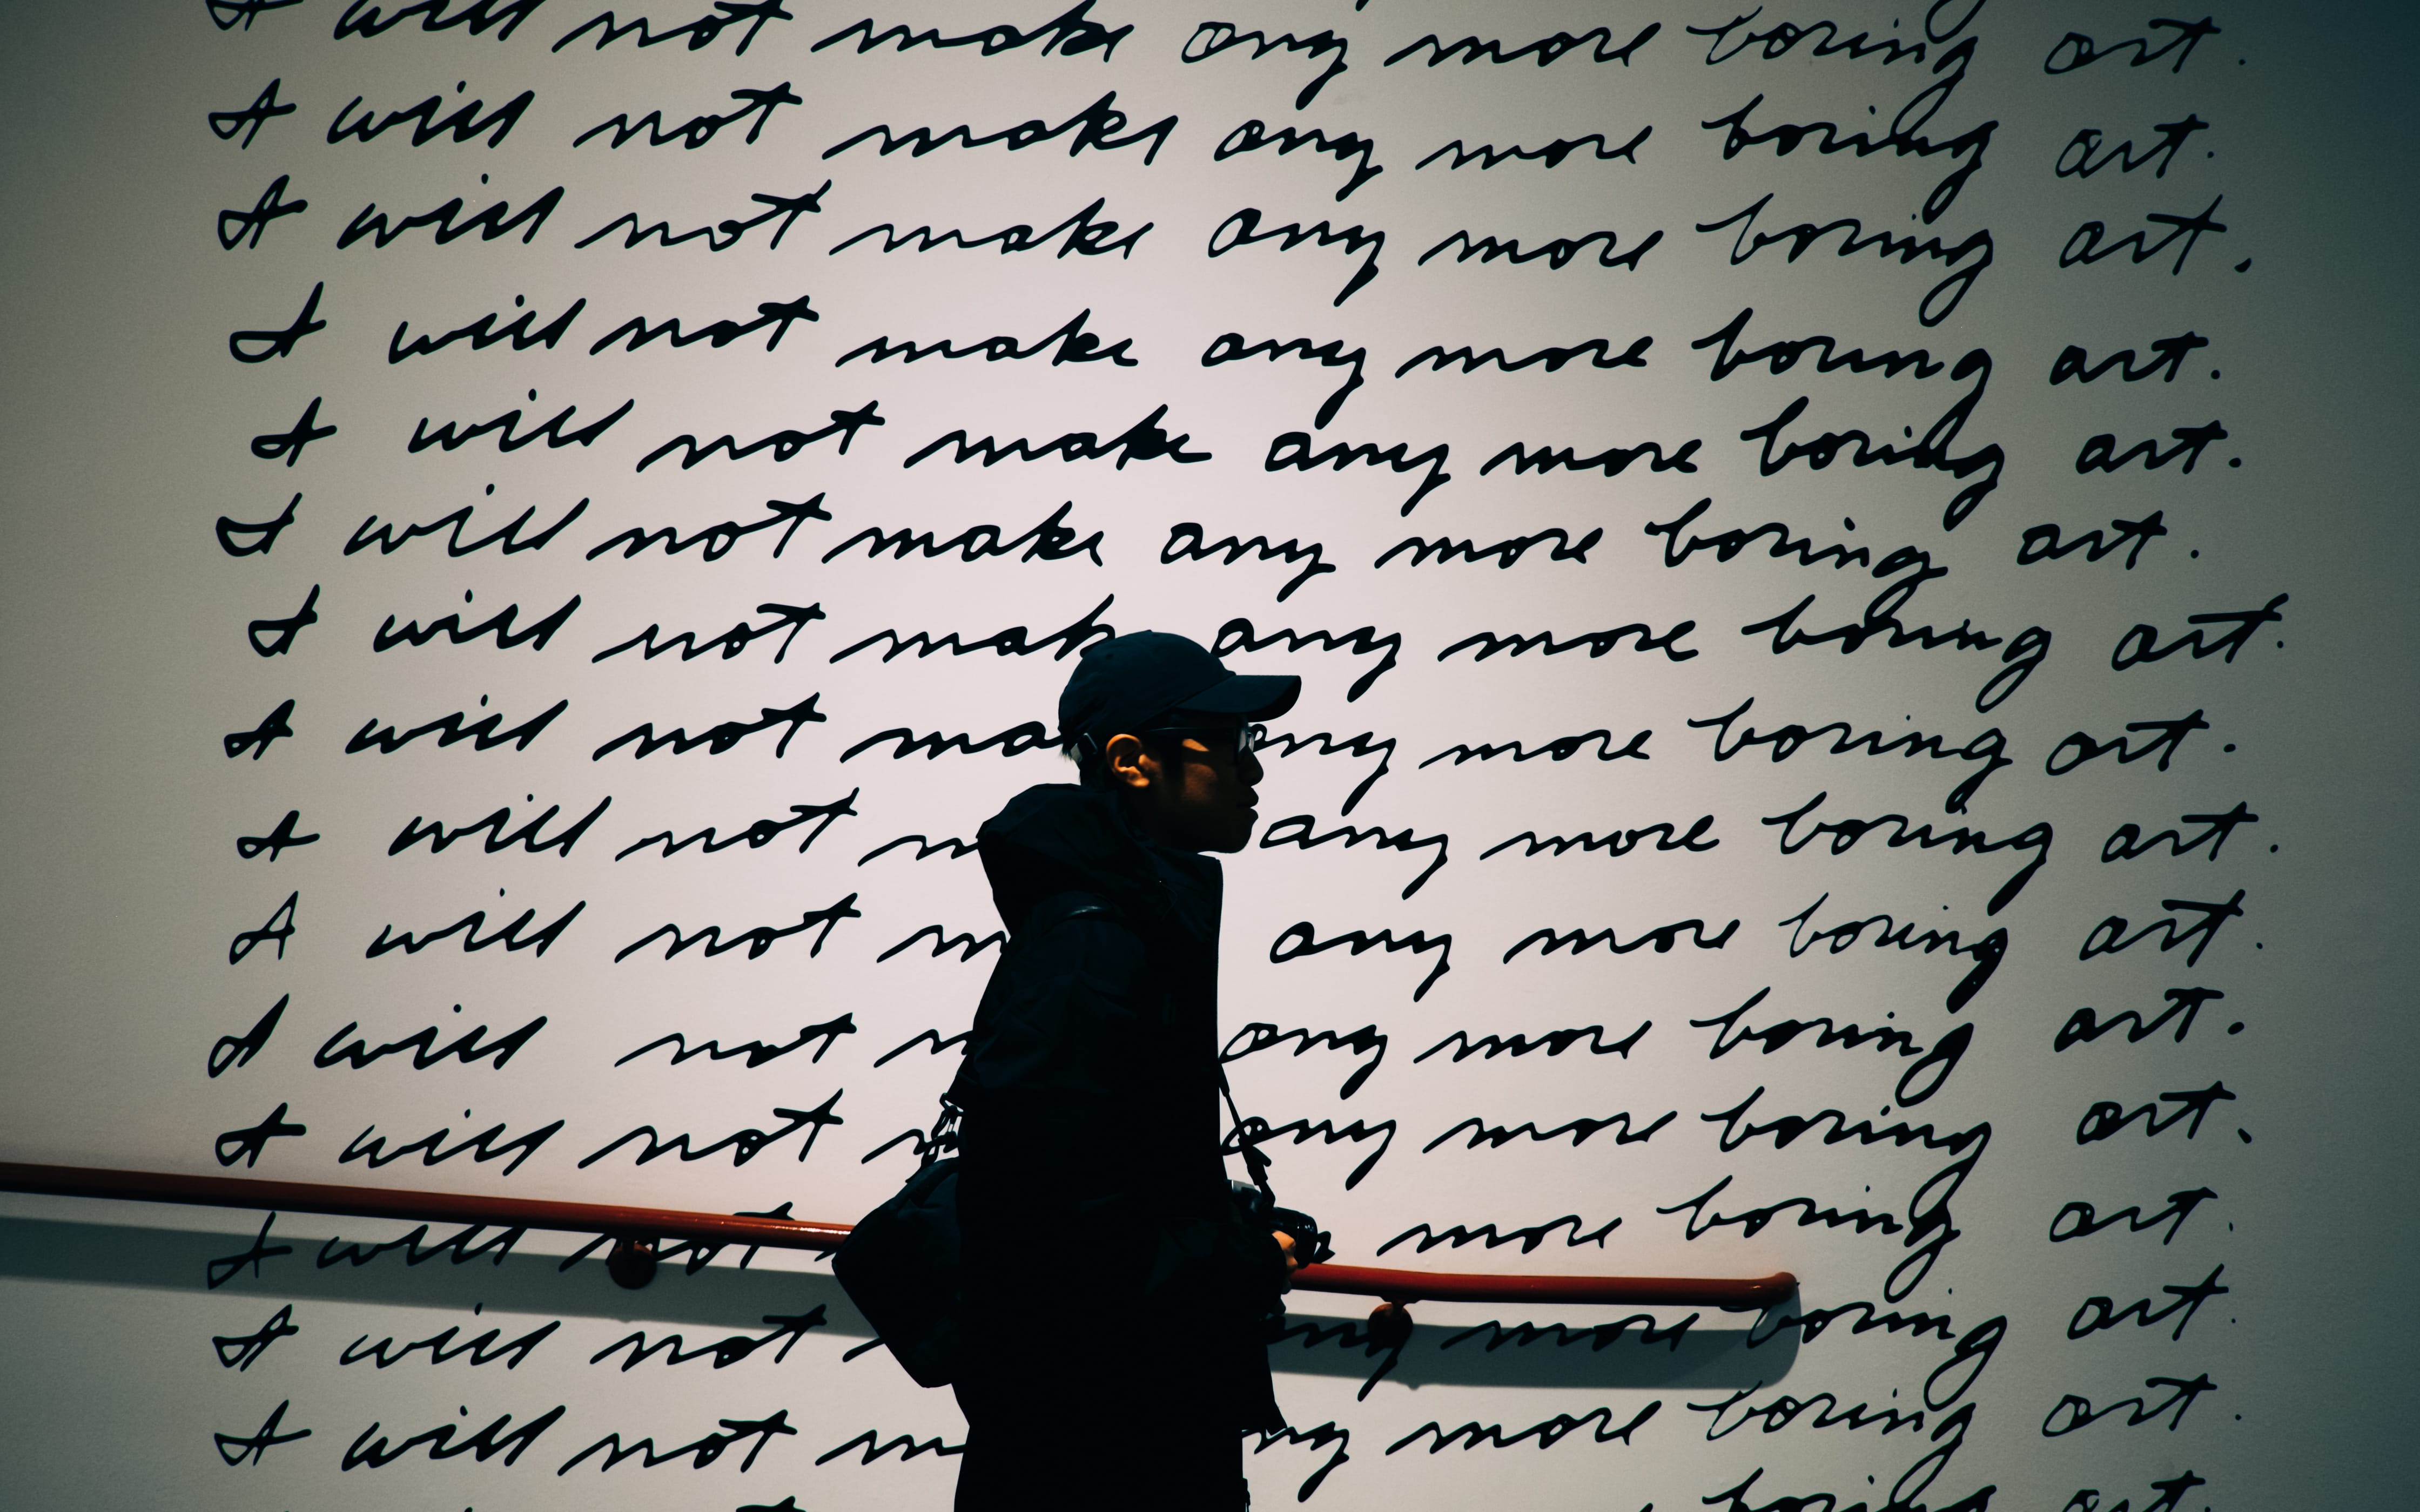 I will not make any more boring art.
I will not make any more boring art.
I will not make any more boring art.
I will not make any more boring art.
I will not make any more boring art.
I will not make any more boring art.
I will not mak any more boring art.
I will not ma any more boring art.
I will not m any more boring art.
I will not m any more boring art.
I will not m any more boring art.
I will not m any more boring art.
I will not more boring art.
I will not any more boring art.
I will not m ny more boring art.
boring art.